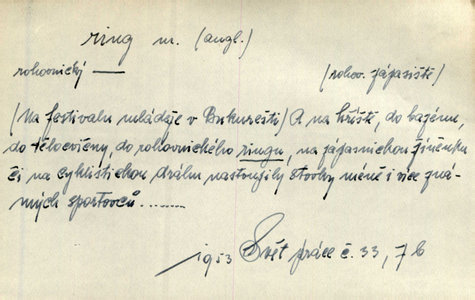 ring m. (angl.)
rohovnický —
(rohov. zápasiště)
(Na festivalu mládeže v Bukurešti) A na hřiště, do bazénu,
do tělocvičny, do rohovnického ringu, na zápasnickou žíněnku
či na cyklistickou dráhu nastoupily stovky méně i více zná-
mých sportovců........
1953 Svět práce č. 33, 7b